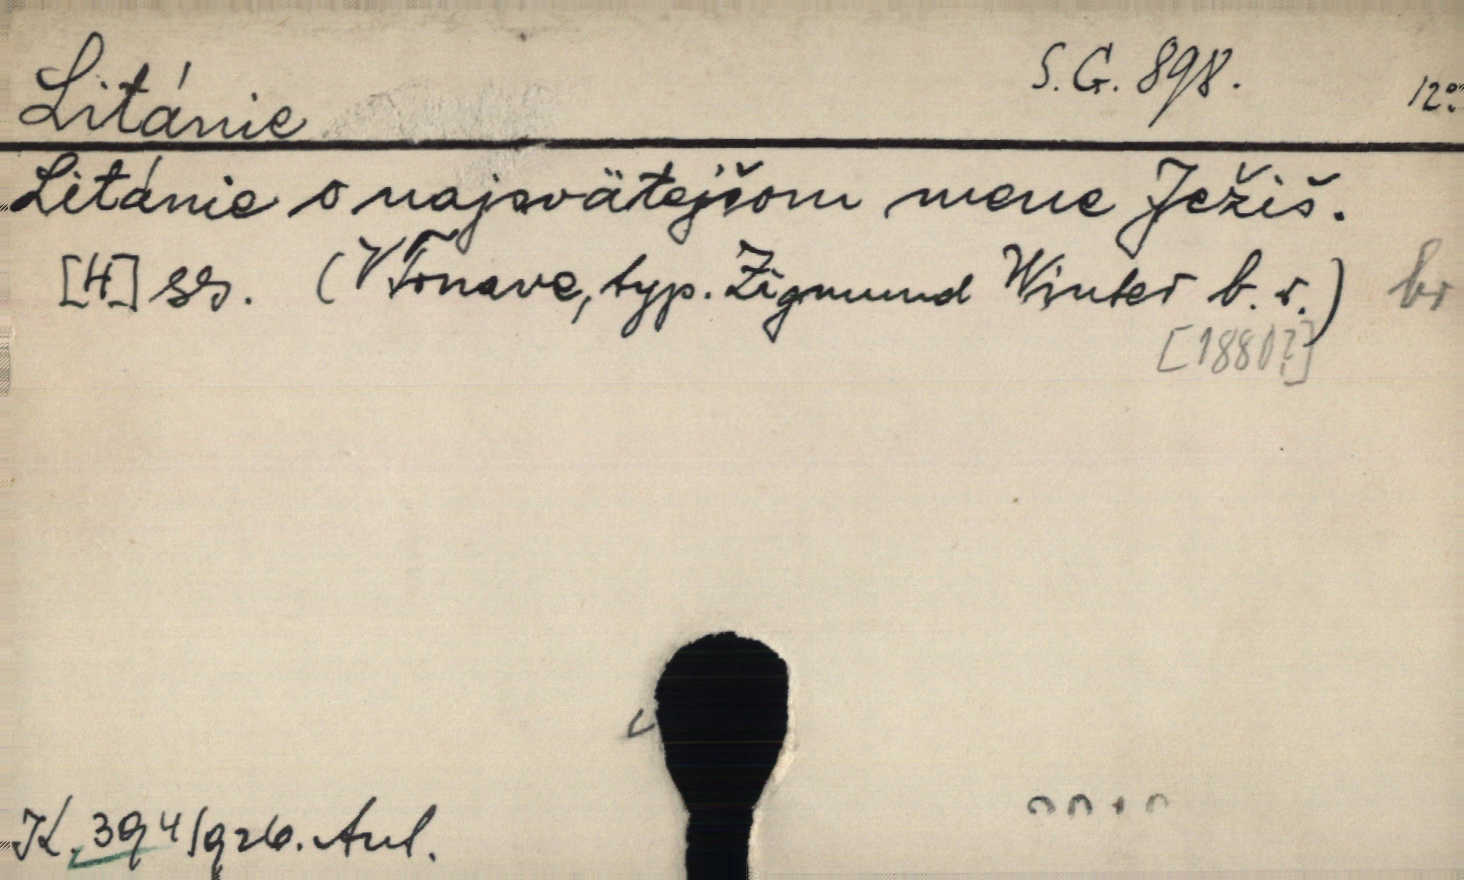 Litánie S.G. 898. 12°.
Litánie o najsvätejšom mene Ježiš.
[4] ss. (V Trnave, typ. Žigmund Winter b. r.) br
[1880?]
K. 394/926. Aul.